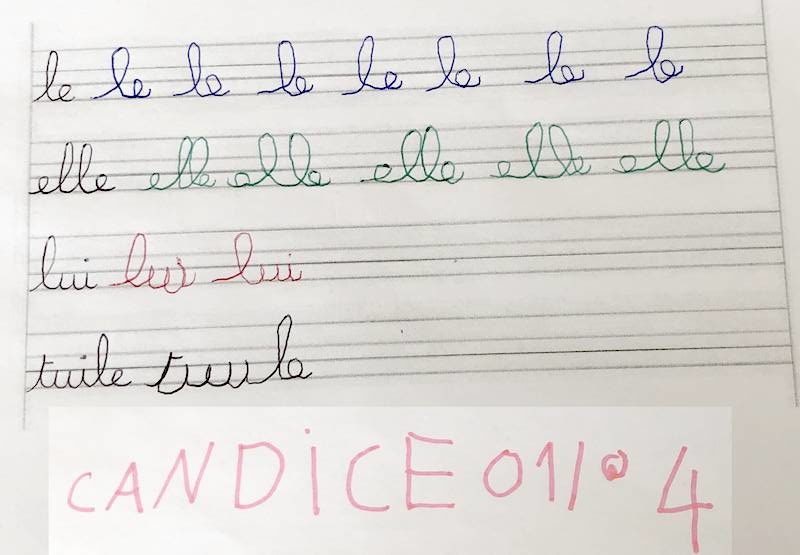 le le le le le le le le
elle elle elle elle elle elle
lui lui lui
tuile tuile
CANDICE 01/04